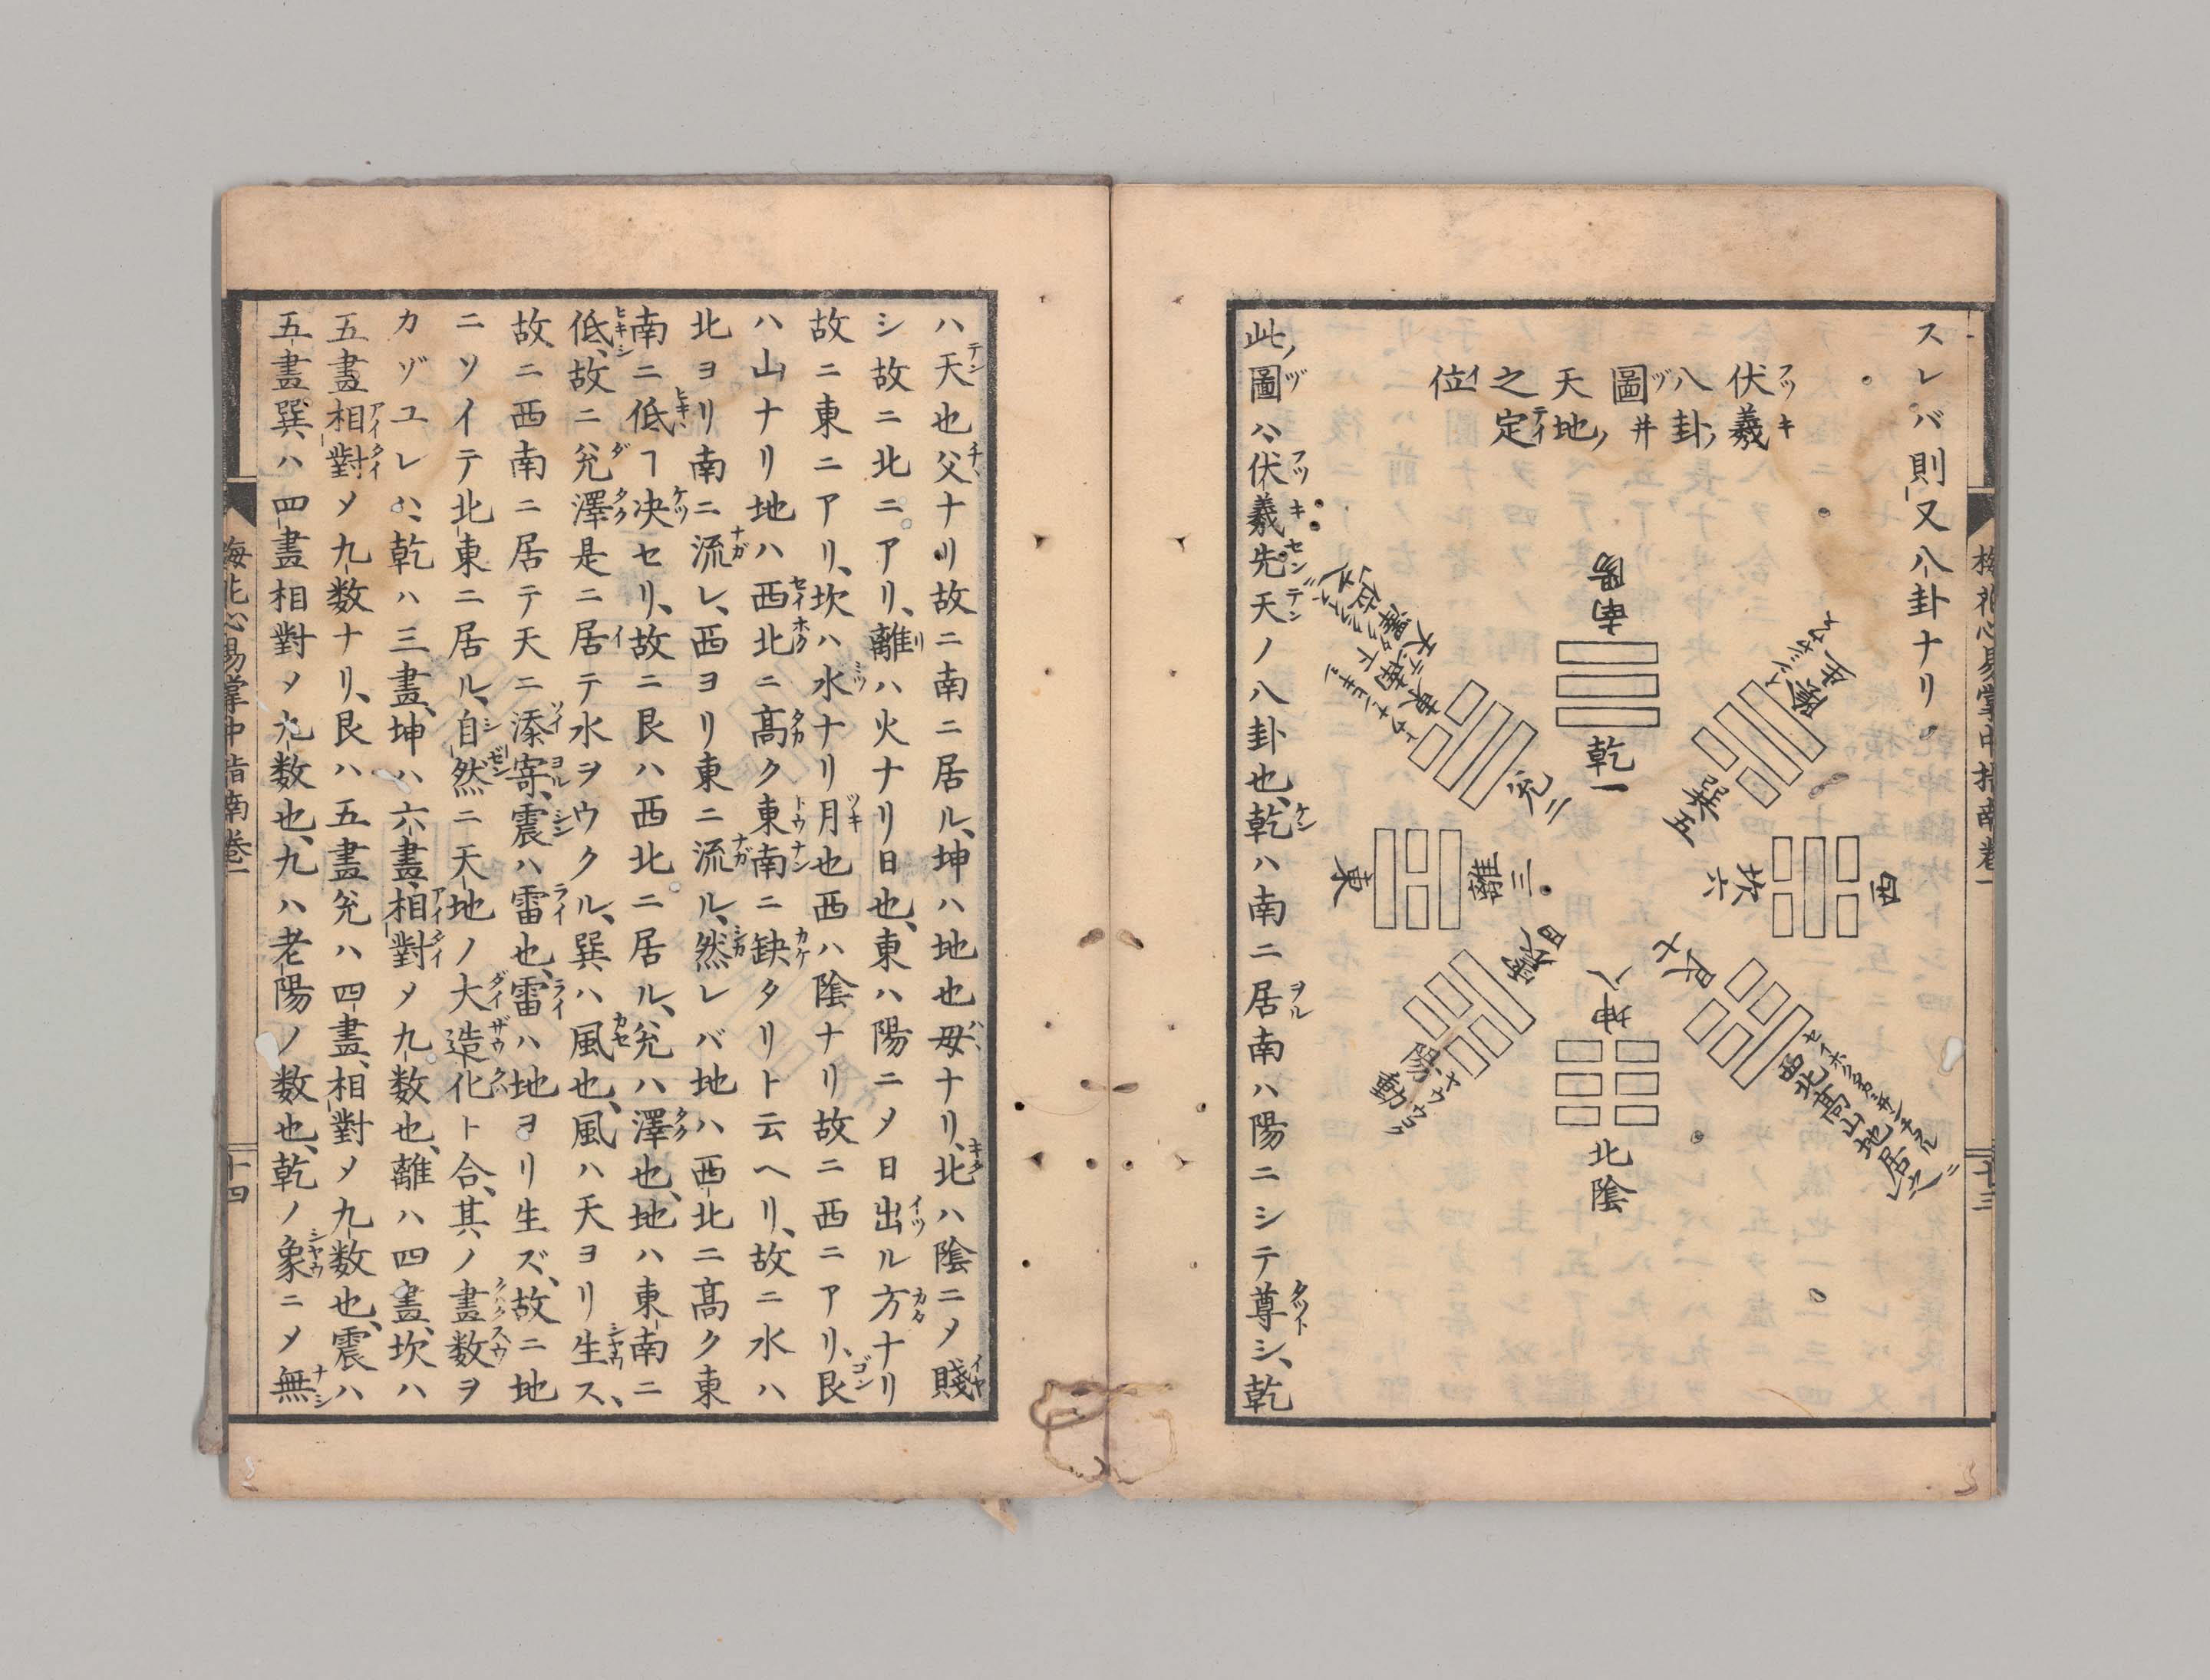 スレバ則又八卦ナリ
伏羲八卦ノ圖井天地ノ之定位
南陽
乾一
兌二
離三
東
震四
陽動
坤八
北陰
艮七
坎六
西
巽五
此ノ圖ハ伏羲先天ノ八卦也、乾ハ南ニ居南ハ陽ニシテ尊シ、乾
梅花心易掌中指南巻一
十三
ハ天也父ナリ故ニ南ニ居ル、坤ハ地也母ナリ、北ハ陰ニメ賤
シ故ニ北ニアリ、離ハ火ナリ日也、東ハ陽ニメ日出ル方ナリ
故ニ東ニアリ、坎ハ水ナリ月也西ハ陰ナリ故ニ西ニアリ、艮
ハ山ナリ地ハ西北ニ高ク東南ニ缺タリト云ヘリ、故ニ水ハ
北ヨリ南ニ流レ、西ヨリ東ニ流ル、然レバ地ハ西北ニ高ク東
南ニ低ヿ决セリ、故ニ艮ハ西北ニ居ル、兌ハ澤也、地ハ東南ニ
低、故ニ兌澤是ニ居テ水ヲウクル、巽ハ風也、風ハ天ヨリ生ス、
故ニ西南ニ居テ天ニ添寄、震ハ雷也、雷ハ地ヨリ生ズ、故ニ地
ニソイテ北東ニ居ル、自然ニ天地ノ大造化ト合、其ノ畫数ヲ
カゾユレハ、乾ハ三畫、坤ハ六畫、相對メ九数也、離ハ四畫、坎ハ
五畫相對メ九数ナリ、艮ハ五畫兌ハ四畫、相對メ九数也、震ハ
五畫、巽ハ四畫相對メ九数也、九ハ老陽ノ数也、乾ノ象ニメ無
梅花心易掌中指南巻一
十四